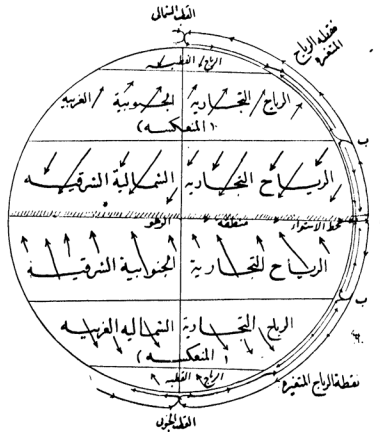 القطب الشمالي
نقطة الرياح
المتغيرة
الرياح القطبية
الرياح التجارية الجنوبية الغربية
(المنعكسة)
ب
الرياح التجارية الشمالية الشرقية
خط الاستواء منطقة الرهو
الرياح التجارية الجنوبية الشرقية
ب
الرياح التجارية الشمالية الغربية
(المنعكسة)
الرياح القطبية
نقطة الرياح المتغيرة
القطب الجنوبي